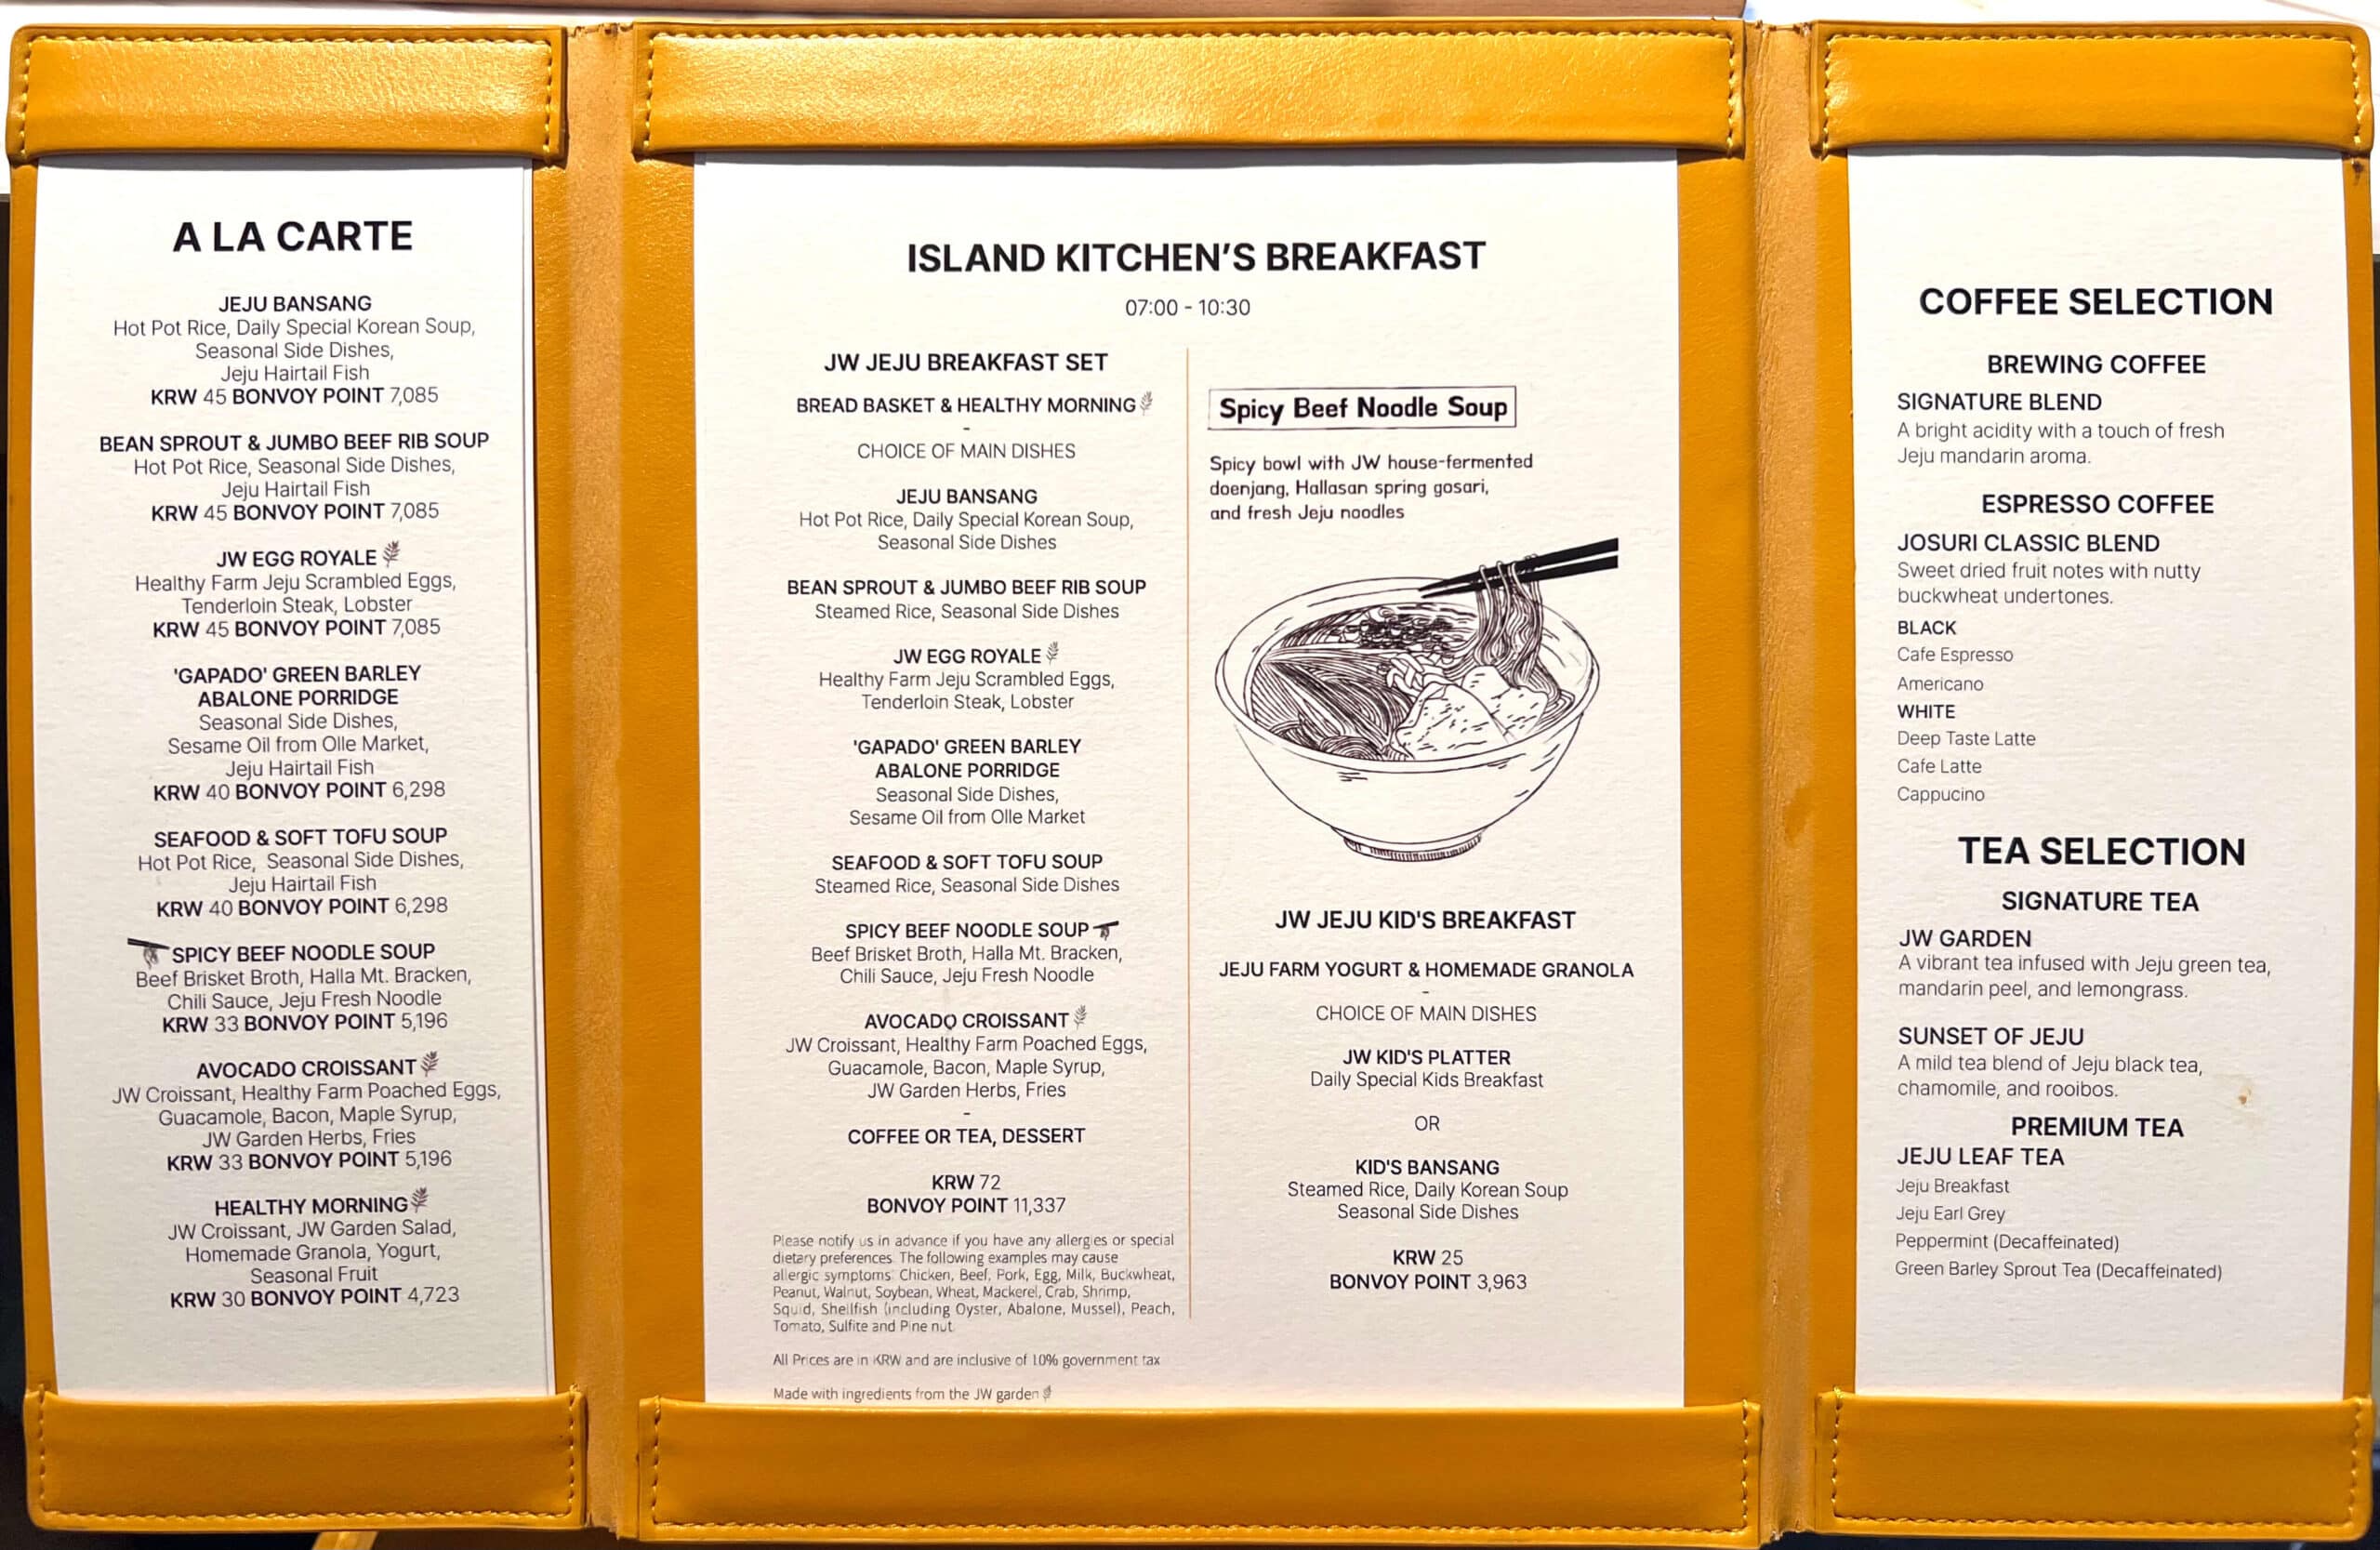 A LA CARTE
JEJU BANSANG
Hot Pot Rice, Daily Special Korean Soup,
Seasonal Side Dishes,
Jeju Hairtail Fish
KRW 45 BONVOY POINT 7,085
BEAN SPROUT & JUMBO BEEF RIB SOUP
Hot Pot Rice, Seasonal Side Dishes,
Jeju Hairtail Fish
KRW 45 BONVOY POINT 7,085
JW EGG ROYALE
Healthy Farm Jeju Scrambled Eggs,
Tenderloin Steak, Lobster
KRW 45 BONVOY POINT 7,085
'GAPADO' GREEN BARLEY
ABALONE PORRIDGE
Seasonal Side Dishes,
Sesame Oil from Olle Market,
Jeju Hairtail Fish
KRW 40 BONVOY POINT 6,298
SEAFOOD & SOFT TOFU SOUP
Hot Pot Rice, Seasonal Side Dishes,
Jeju Hairtail Fish
KRW 40 BONVOY POINT 6,298
SPICY BEEF NOODLE SOUP
Beef Brisket Broth, Halla Mt. Bracken,
Chili Sauce, Jeju Fresh Noodle
KRW 33 BONVOY POINT 5,196
AVOCADO CROISSANT
JW Croissant, Healthy Farm Poached Eggs,
Guacamole, Bacon, Maple Syrup,
JW Garden Herbs, Fries
KRW 33 BONVOY POINT 5,196
HEALTHY MORNING
JW Croissant, JW Garden Salad,
Homemade Granola, Yogurt,
Seasonal Fruit
KRW 30 BONVOY POINT 4,723
ISLAND KITCHEN'S BREAKFAST
07:00 - 10:30
JW JEJU BREAKFAST SET
BREAD BASKET & HEALTHY MORNING
-
CHOICE OF MAIN DISHES
JEJU BANSANG
Hot Pot Rice, Daily Special Korean Soup,
Seasonal Side Dishes
BEAN SPROUT & JUMBO BEEF RIB SOUP
Steamed Rice, Seasonal Side Dishes
JW EGG ROYALE
Healthy Farm Jeju Scrambled Eggs,
Tenderloin Steak, Lobster
'GAPADO' GREEN BARLEY
ABALONE PORRIDGE
Seasonal Side Dishes,
Sesame Oil from Olle Market
SEAFOOD & SOFT TOFU SOUP
Steamed Rice, Seasonal Side Dishes
SPICY BEEF NOODLE SOUP
Beef Brisket Broth, Halla Mt. Bracken,
Chili Sauce, Jeju Fresh Noodle
AVOCADO CROISSANT
JW Croissant, Healthy Farm Poached Eggs,
Guacamole, Bacon, Maple Syrup,
JW Garden Herbs, Fries
-
COFFEE OR TEA, DESSERT
KRW 72
BONVOY POINT 11,337
Please notify us in advance if you have any allergies or special
dietary preferences. The following examples may cause
allergic symptoms: Chicken, Beef, Pork, Egg, Milk, Buckwheat,
Peanut, Walnut, Soybean, Wheat, Mackerel, Crab, Shrimp,
Squid, Shellfish (including Oyster, Abalone, Mussel), Peach,
Tomato, Sulfite and Pine nut.
All Prices are in KRW and are inclusive of 10% government tax
Made with ingredients from the JW garden
Spicy Beef Noodle Soup
Spicy bowl with JW house-fermented
doenjang, Hallasan spring gosari,
and fresh Jeju noodles
JW JEJU KID'S BREAKFAST
JEJU FARM YOGURT & HOMEMADE GRANOLA
-
CHOICE OF MAIN DISHES
JW KID'S PLATTER
Daily Special Kids Breakfast
OR
KID'S BANSANG
Steamed Rice, Daily Korean Soup
Seasonal Side Dishes
KRW 25
BONVOY POINT 3,963
COFFEE SELECTION
BREWING COFFEE
SIGNATURE BLEND
A bright acidity with a touch of fresh
Jeju mandarin aroma.
ESPRESSO COFFEE
JOSURI CLASSIC BLEND
Sweet dried fruit notes with nutty
buckwheat undertones.
BLACK
Cafe Espresso
Americano
WHITE
Deep Taste Latte
Cafe Latte
Cappucino
TEA SELECTION
SIGNATURE TEA
JW GARDEN
A vibrant tea infused with Jeju green tea,
mandarin peel, and lemongrass.
SUNSET OF JEJU
A mild tea blend of Jeju black tea,
chamomile, and rooibos.
PREMIUM TEA
JEJU LEAF TEA
Jeju Breakfast
Jeju Earl Grey
Peppermint (Decaffeinated)
Green Barley Sprout Tea (Decaffeinated)